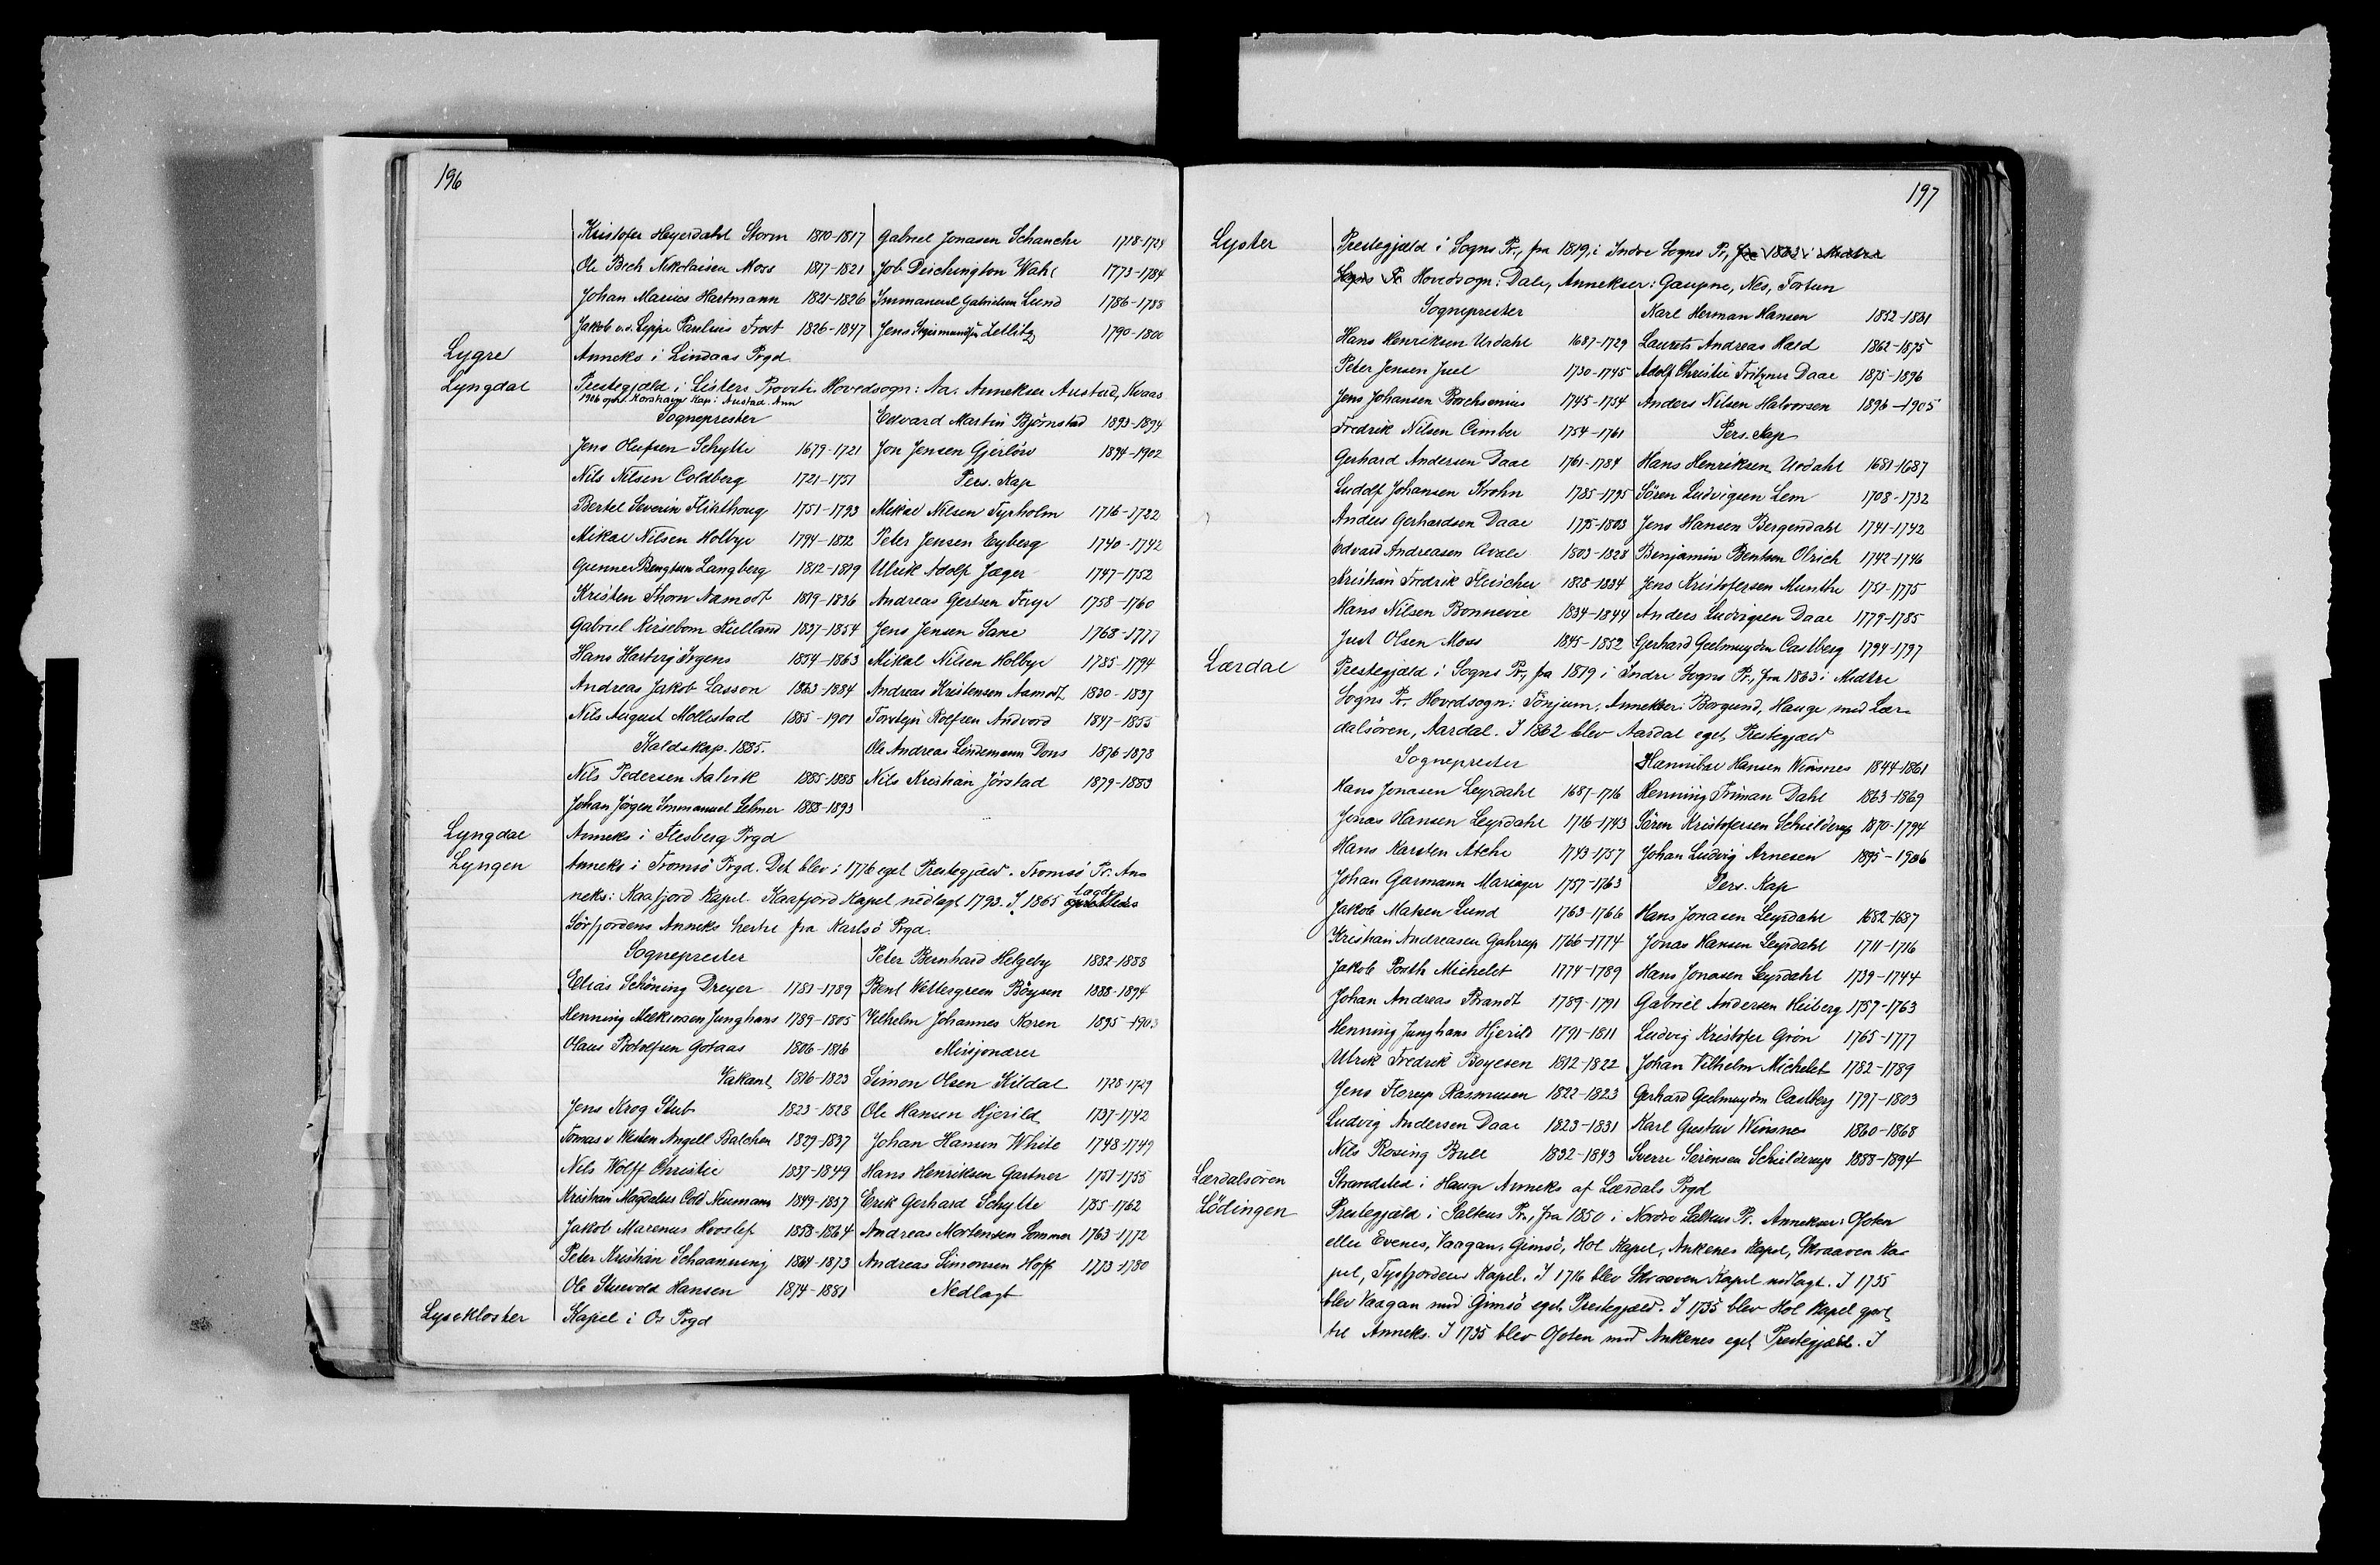 196
Kristofer Heyerdahl Storm 1810-1817 Gabriel Jonasen Schanche 1718-1724
Ole Bech Nikolaisen Moss 1817-1821 Job Dischington Wahl 1773-1784
Johan Marius Hartmann 1821-1826 Immanuel Gabrielsen Lund 1786-1788
Jakob v.d. Lippe Paulius Frost 1826-1847 Jens Sigismundsen Zetlitz 1790-1800
Lygre Anneks i Lindaas Prgd
Lyngdal Prestegjæld i Listers Provsti Hovedsogn: Aa. Annekser Austad, Kvaas
1906 opht. Korshavn Kap: Austad. Ann
Sogneprester Edvard Martin Bjørnstad 1893-1894
Jens Olufsen Schytte 1679-1721 Jon Jensen Gjerløw 1894-1902
Nils Nilsen Coldberg 1721-1751 Pers. Kap
Bertel Severin Flinthoug 1751-1793 Mikal Nilsen Tyrholm 1716-1722
Mikal Nilsen Holbye 1794-1812 Peter Jensen Eyberg 1740-1742
Gunner Bengtsen Langberg 1812-1819 Ulrik Adolf Jæger 1747-1752
Kristen Thorn Aamodt 1819-1836 Andreas Gertsen Faye 1758-1760
Gabriel Kirsebom Kielland 1837-1854 Jens Jensen Sane 1768-1777
Hans Hartvig Irgens 1854-1863 Mikal Nilsen Holbye 1785-1794
Andreas Jakob Lasson 1863-1884 Andreas Kristensen Aamodt 1830-1837
Nils August Mollestad 1885-1901 Torstein Rolfsen Andvord 1847-1853
Kaldskap. 1885. Ole Andreas Lindemann Dons 1876-1878
Nils Pedersen Aalvik 1885-1888 Nils Kristian Jørstad 1879-1883
Johan Jörgen Immanuel Selmer 1888-1893
Lyngdal Anneks i Flesberg Prgd
Lyngen Anneks i Tromsö Prgd. Det blev i 1776 eget Prestegjæld. Tromsö Pr. An-
neks: Kaafjord Kapel. Kaafjord Kapel nedlagt 1793. I 1865 lagdes
Sörfjordens Anneks hertil fra Karlsö Prgd.
Sogneprester Peter Bernhard Helgeby 1882-1888
Elias Schöning Dreyer 1781-1789 Bent Wettergreen Böysen 1888-1894
Henning Melkiorsen Junghans 1789-1805 Vilhelm Johannes Koren 1895-1903
Olaus Rotolfsen Gotaas 1806-1816 Misjonærer
Vakant 1816-1823 Simon Olsen Kildal 1728-1729
Jens Krog Stub 1823-1828 Ole Hansen Hjerild 1737-1742
Tomas v Westen Angell Balchen 1829-1837 Johan Hansen White 1748-1749
Nils Wolff Christie 1837-1849 Hans Henriksen Gartner 1751-1755
Kristian Magdalus Cold Neumann 1849-1857 Erik Gerhard Schytte 1755-1762
Jakob Marenus Hvoslef 1858-1864 Andreas Mortensen Sommer 1763-1772
Peter Kristian Schaanning 1864-1873 Andreas Simonsen Hoff 1773-1780
Ole Stuevold Hansen 1874-1881 Nedlagt
Lysekloster Kapel i Os Prgd
197
Lyster Prestegjæld i Sogns Pr., fra 1819 i Indre Sogns Pr, fra 1863 i Midtre
Sogns Pr Hovedsogn: Dale, Annekser: Gaupne, Nes, Fortun
Sogneprester Karl Herman Hansen 1852-1861
Hans Henriksen Urdahl 1687-1729 Laurets Andreas Hald 1862-1875
Peter Jensen Juel 1730-1745 Adolf Christie Fritzner Daae 1875-1896
Jens Johansen Borchsenius 1745-1754 Anders Nilsen Halvorsen 1896-1905
Fredrik Nilsen Arnber 1754-1761 Pers. Kap
Gerhard Andersen Daae 1761-1784 Hans Henriksen Urdahl 1681-1687
Ludolf Johansen Krohn 1785-1795 Sören Ludvigsen Lem 1708-1732
Anders Gerhardsen Daae 1795-1803 Jens Hansen Bergendahl 1741-1742
Edvard Andreasen Quale 1803-1828 Benjamin Bentsen Olrich 1742-1746
Kristian Fredrik Fleischer 1828-1834 Jens Kristofersen Munthe 1751-1775
Hans Nilsen Bonnevie 1834-1844 Anders Ludvigsen Daae 1779-1785
Just Olsen Moss 1845-1852 Gerhard Geelmuyden Castberg 1794-1797
Lærdal Prestegjæld i Sogns Pr., fra 1819 i Indre Sogns Pr., fra 1863 i Midtre
Sogns Pr. Hovedsogn: Tönjum, Annekser: Borgund, Hauge med Lær-
dalsören, Aardal. I 1862 blev Aardal eget Prestegjæld
Sogneprester Hannibal Hansen Winsnes 1844-1861
Hans Jonasen Leyrdahl 1687-1716 Henning Friman Dahl 1863-1869
Jonas Hansen Leyrdahl 1716-1743 Sören Kristofersen Schielderup 1870-1794
Hans Karsten Atche 1743-1757 Johan Ludvig Arnesen 1895-1906
Johan Garmann Mariager 1757-1763 Pers. Kap
Jakob Matsen Lund 1763-1766 Hans Jonasen Leyrdahl 1682-1687
Kristian Andreasen Gahrup 1766-1774 Jonas Hansen Leyrdahl 1711-1716
Jakob Posth Michelet 1774-1789 Hans Jonasen Leyrdahl 1739-1744
Johan Andreas Brandt 1789-1791 Gabriel Andersen Heiberg 1757-1763
Henning Junghans Hjerild 1791-1811 Ludvig Kristofer Grön 1765-1777
Ulrik Fredrik Boyesen 1812-1822 Johan Vilhelm Michelet 1782-1789
Jens Florup Rasmussen 1822-1823 Gerhard Geelmuyden Castberg 1797-1803
Ludvig Andersen Daae 1823-1831 Karl Gustav Winsnes 1860-1868
Nils Rosing Bull 1832-1843 Sverre Sörensen Schielderup 1888-1894
Lærdalsören Strandsted i Hauge Anneks af Lærdals Prgd
Lödingen Prestegjæld i Saltens Pr., fra 1850 i Nordre Saltens Pr. Annekser: Ofoten
eller Evenes, Vaagan, Gimsö, Hol Kapel, Ankenes Kapel, Skraaven Ka-
pel, Tysfjordens Kapel. I 1716 blev Skraaven Kapel nedlagt. I 1735
blev Vaagan med Gimsö eget Prestegjæld. I 1735 blev Hol Kapel gjort
til Anneks. I 1735 blev Ofoten med Ankenes eget Prestegjæld. I